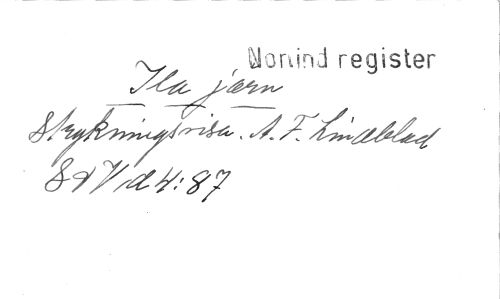 Nonind register
Ila jarn
Strykningsvisa. A. F. Lindblad
S d V d 4:87